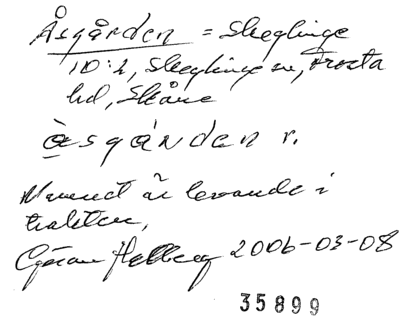 Åsgården = Skeglinge
10:2, Skeglinge sn, Frosta
hd, Skåne
àsgå'rden r.
Namnet är levande i
trakten,
Göran Hallberg 2006-03-08
35899